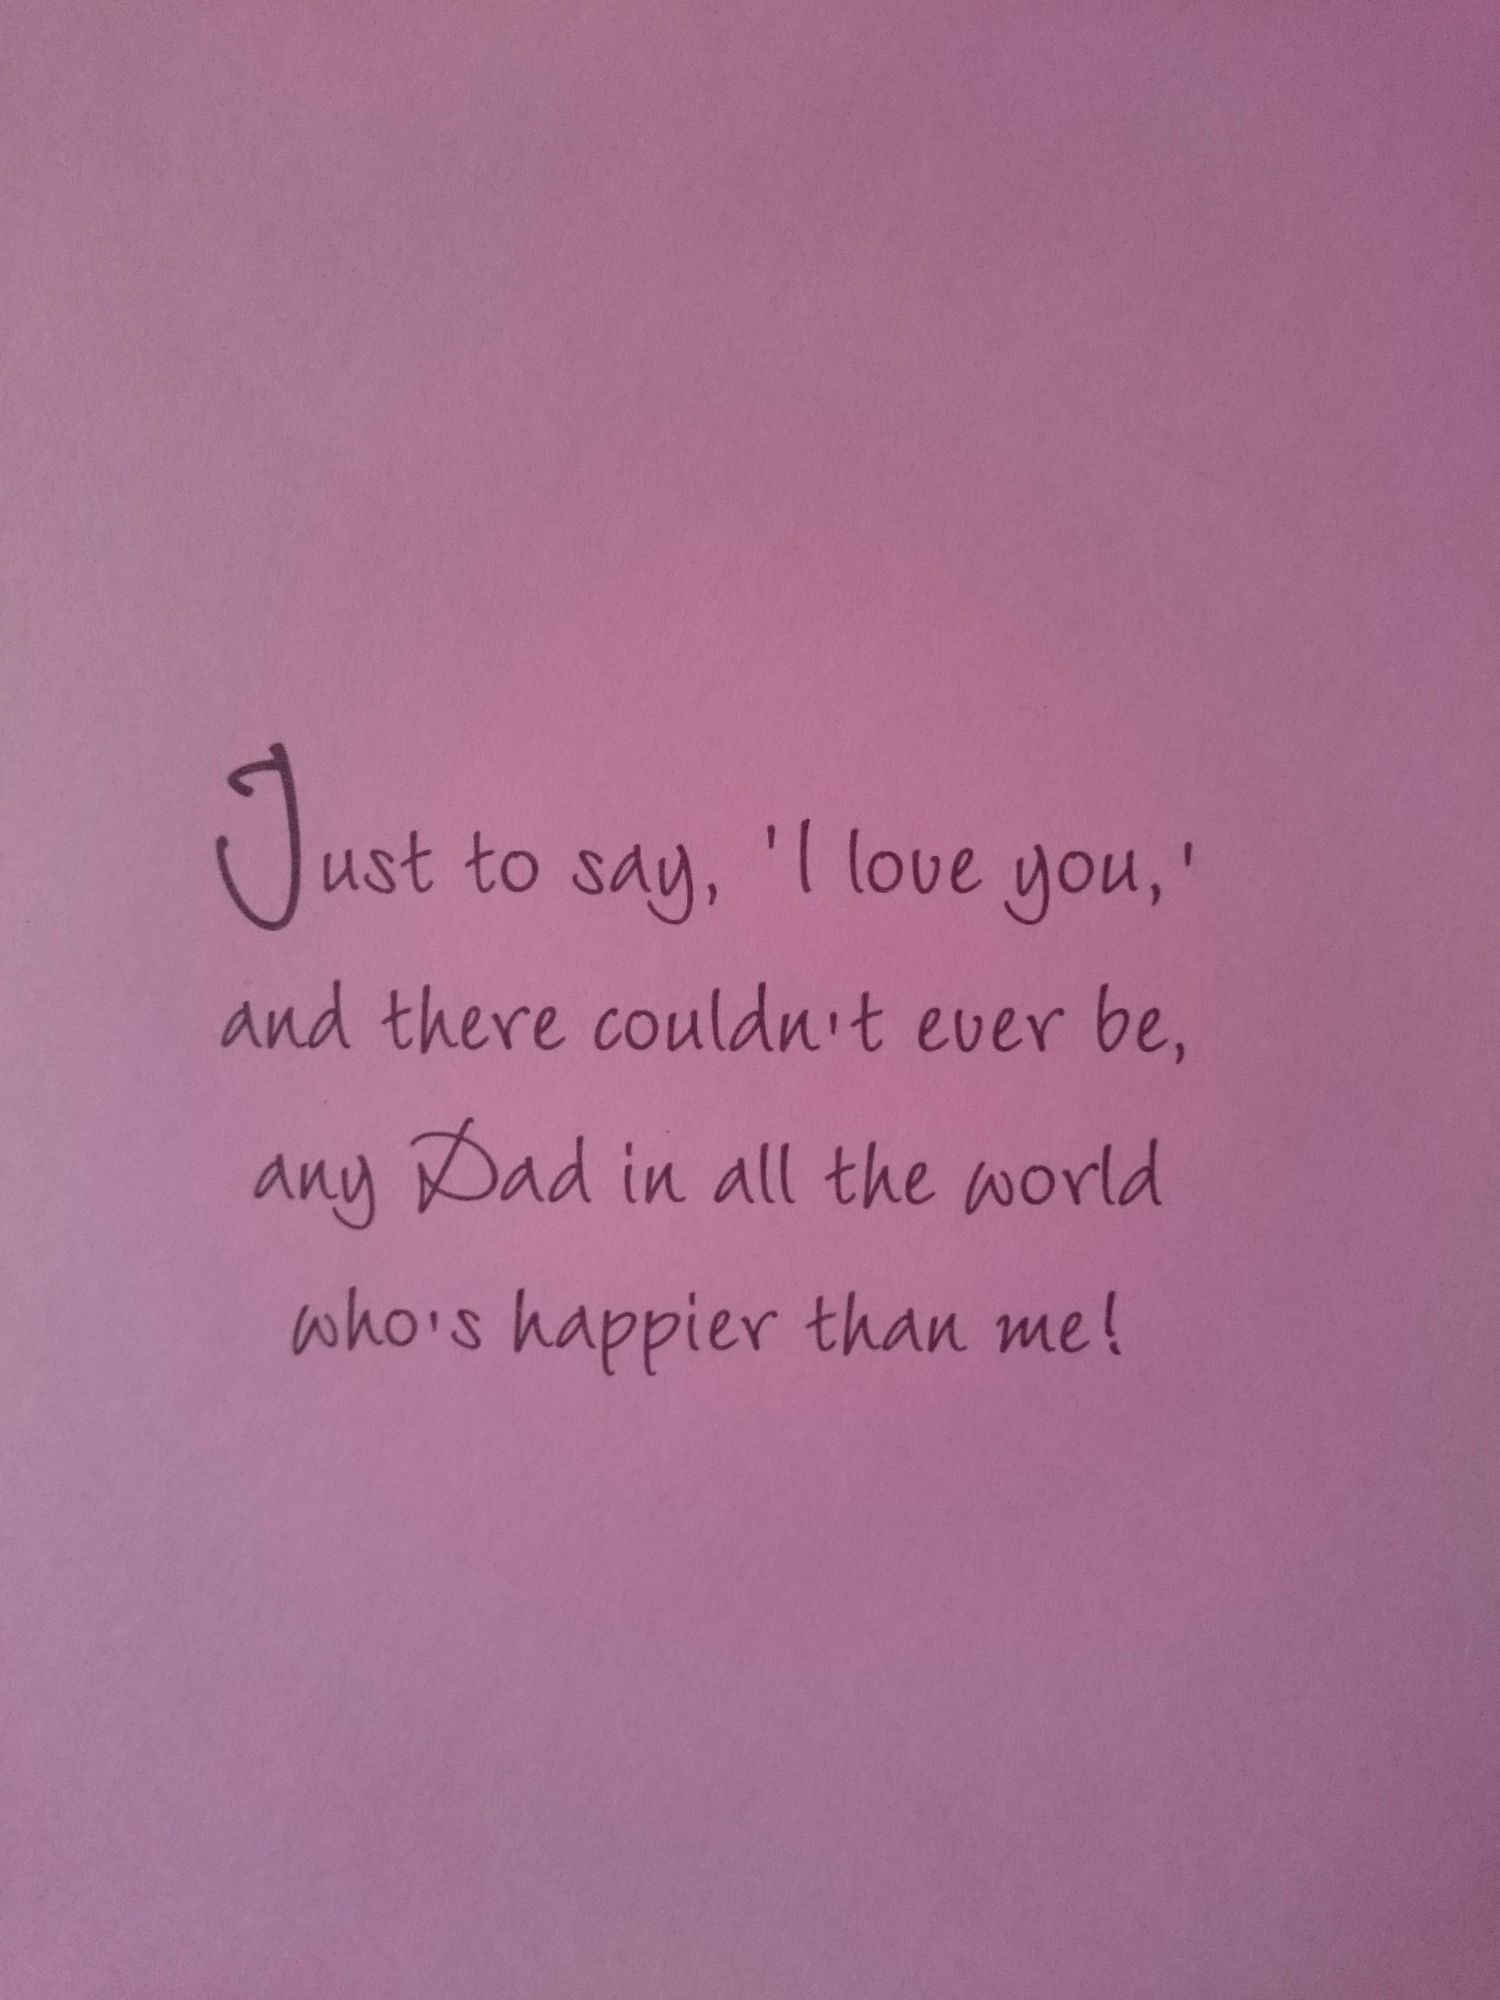 Just to say, 'I love you,'
and there couldn't ever be,
any Dad in all the world
who's happier than me!